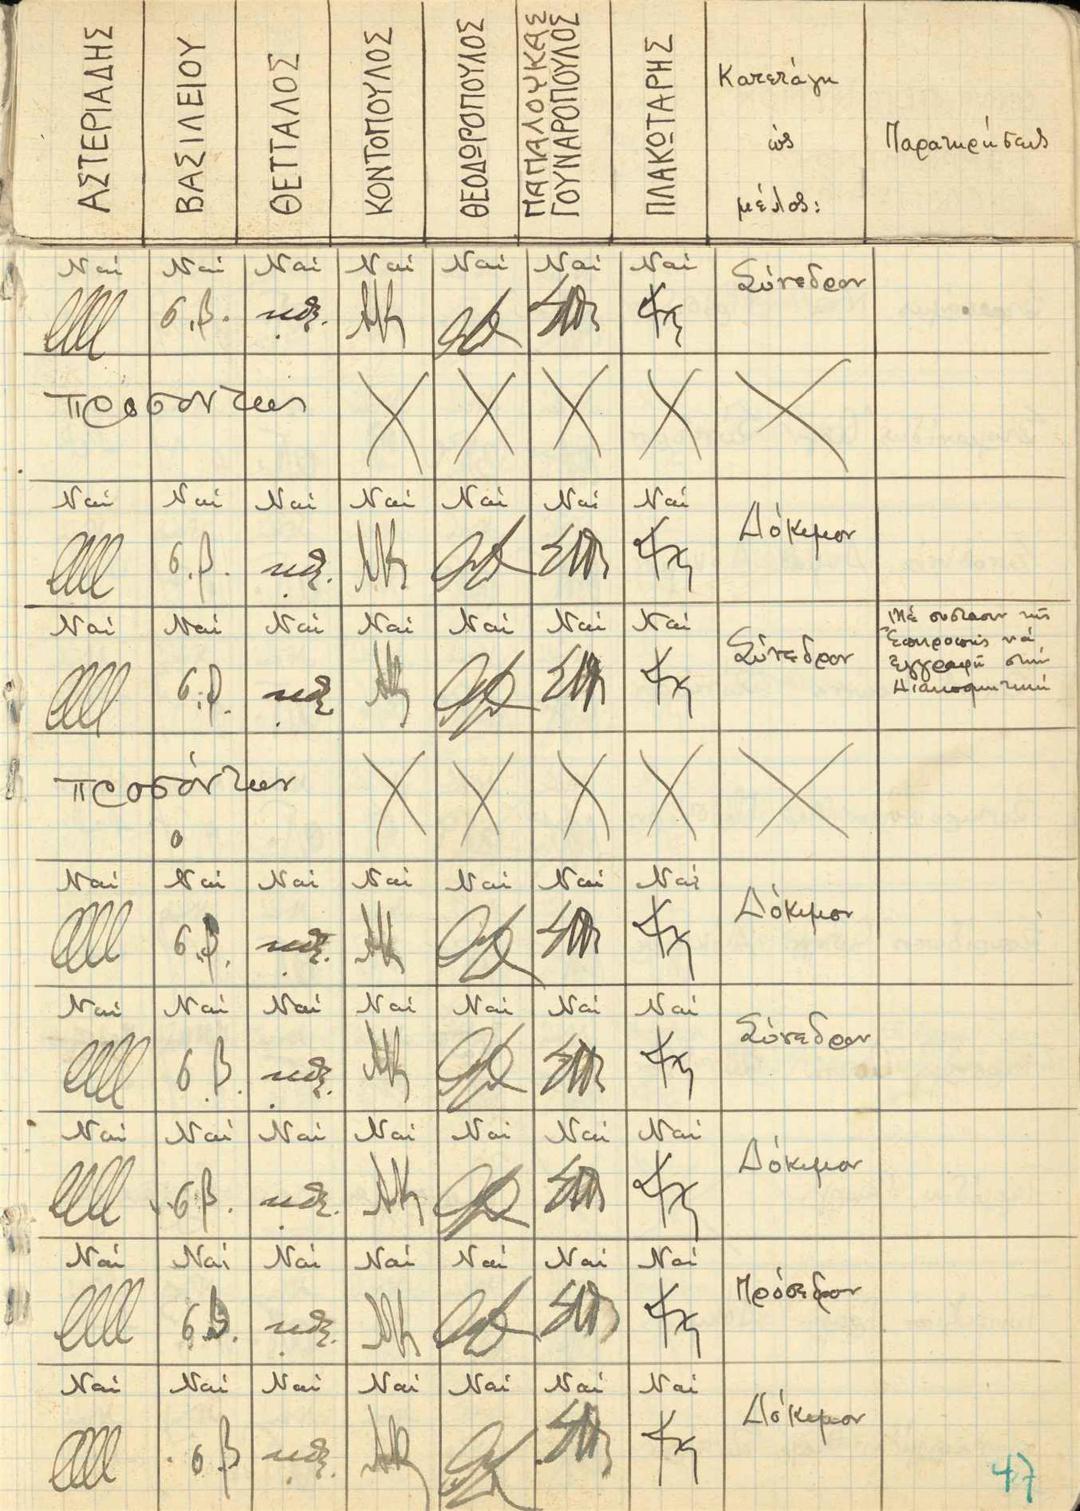 ΑΣΤΕΡΙΑΔΗΣ ΒΑΣΙΛΕΙΟΥ ΘΕΤΤΑΛΟΣ ΚΟΝΤΟΠΟΥΛΟΣ ΘΕΟΔΩΡΟΠΟΥΛΟΣ ΠΑΠΑΛΟΥΚΑΣ ΓΟΥΝΑΡΟΠΟΥΛΟΣ ΠΛΑΚΩΤΑΡΗΣ Κατετάγη ὡς μέλος: Παρατηρήσεις
Ναί Ναί Ναί Ναί Ναί Ναί Ναί Σύνεδρον
σ.β.
προσόντων
Ναί Ναί Ναί Ναί Ναί Ναί Ναί Δόκιμον
σ.β.
Ναί Ναί Ναί Ναί Ναί Ναί Ναί Σύνεδρον Μέ σύστασιν τῆς
Ἐπιτροπῆς νά
ἐγγραφῆ στήν
Διακοσμητική
σ.β.
προσόντων
Ναί Ναί Ναί Ναί Ναί Ναί Ναί Δόκιμον
σ.β.
Ναί Ναί Ναί Ναί Ναί Ναί Ναί Σύνεδρον
σ.β.
Ναί Ναί Ναί Ναί Ναί Ναί Ναί Δόκιμον
σ.β.
Ναί Ναί Ναί Ναί Ναί Ναί Ναί Πρόσεδρον
σ.β.
Ναί Ναί Ναί Ναί Ναί Ναί Ναί Δόκιμον
σ.β
47